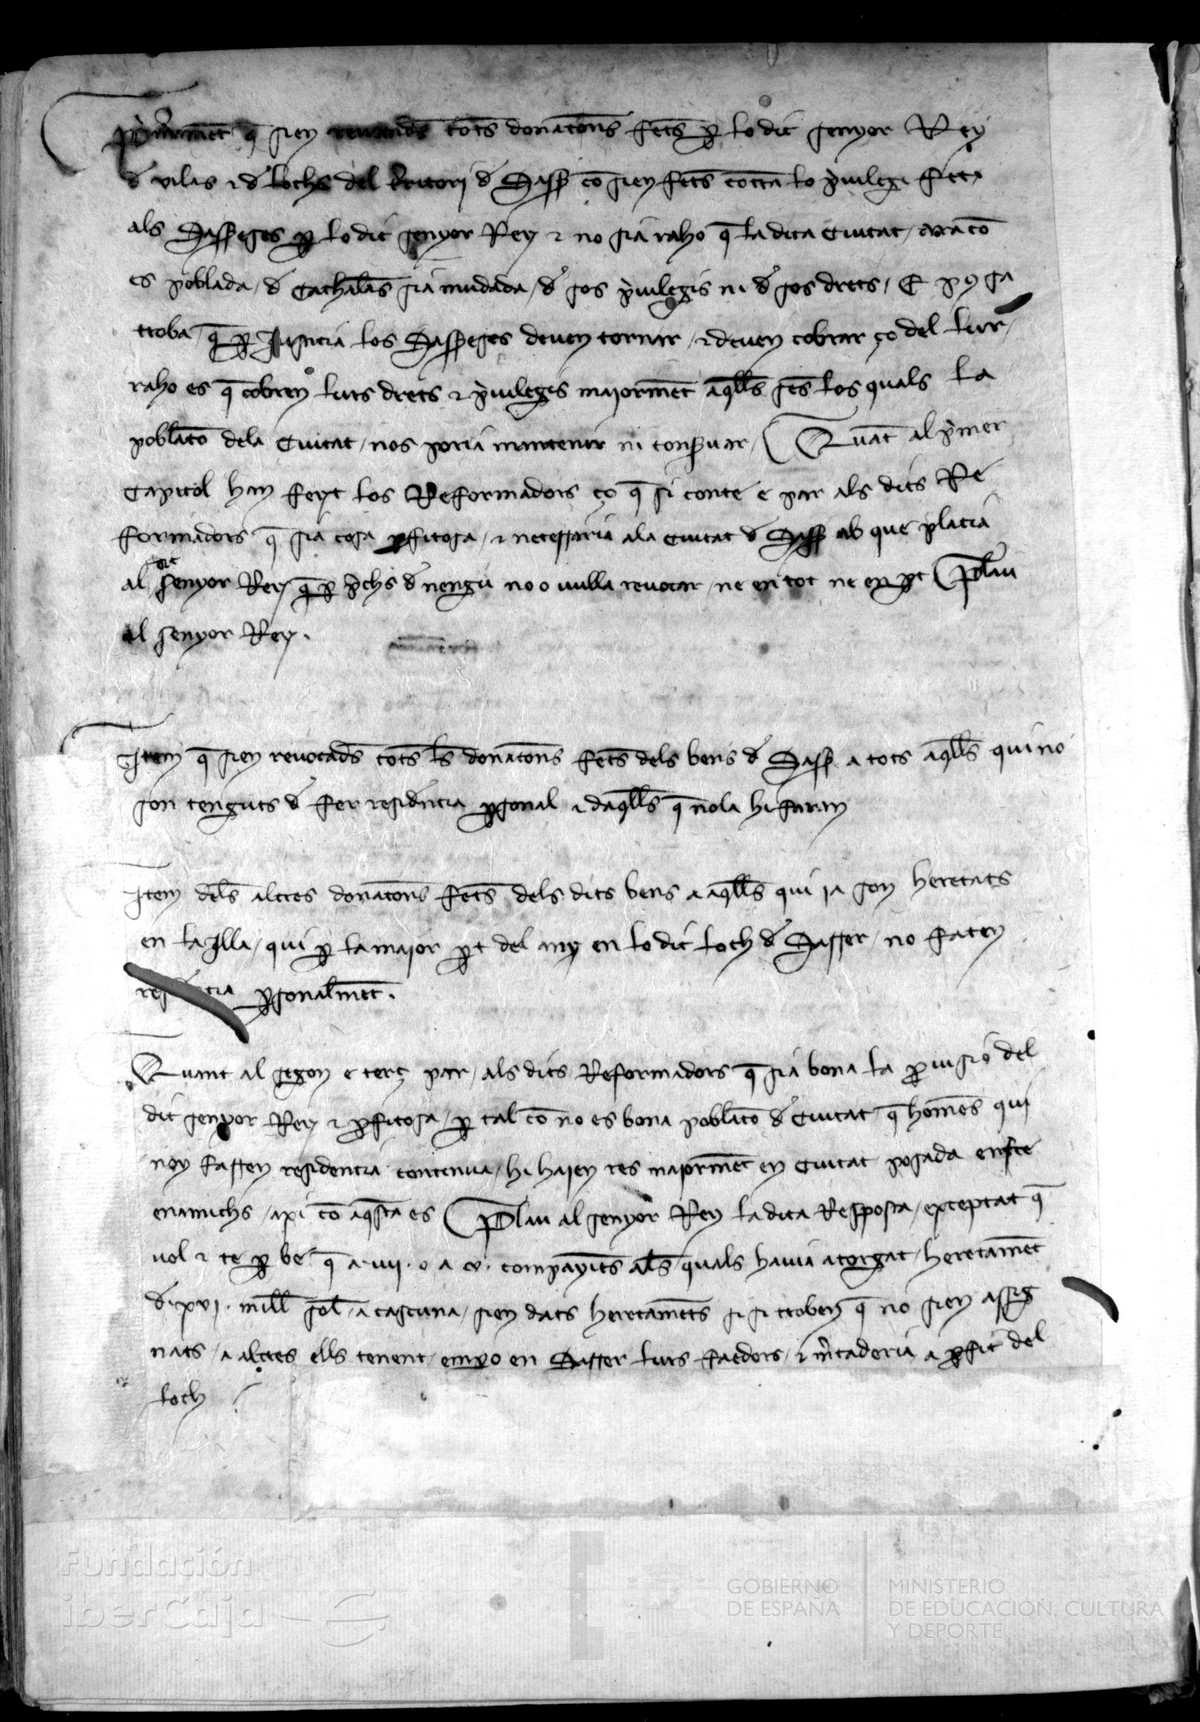 Primerament q̄ sien revocads̄ totes donacions̄ fetes p̱ lo dit senyor Rey
d̄ vilas ⁊ d̄ lochs del t̄ritori d̄ Sass̄ co sien fets̄ contra lo p̄vilegi feta
als Sassreses p̱ lo dit senyor Rey ⁊ no sia raho q̄ la dita Ciutat / axi cō
es poblada / d̄ Cathalās sia mudada / d̄ sos p̄vilegis ni d̄ sos drets / E pus sa
troba q̄ p̱ Justicia los Sassreses deven tornar / ⁊ deven cobrar ço del lur /
raho es q̄ cobren lurs drets ⁊ p̄vilegis maiormēt aq̄lls̄ ses los quals la
poblacō dela Ciutat / nos poria mantenir ni conservar / Quāt al p̄mer
Capitol han feyt los Reformadors ço q̄ si conte e par als dits Re
formadors q̄ sia cosa p̱fitosa / ⁊ necessaria ala Ciutat d̄ Sass̄ ab que placia
al dit senyor Rey q̄ p̱ p̄chs d̄ nengu no o vulla revocar / ne en tot ne en p̱t Plau
al senyor Rey .
Item q̄ sien revocads̄ totes les̄ donacions̄ fetes dels bens d̄ Sass̄ a tots aq̄lls̄ qui no
son tenguts d̄ fer residencia p̱sonal ⁊ daq̄lls̄ q̄ nola hi faran
Item dels̄ altres donacions̄ fetes dels dits bens a aq̄lls̄ qui ja son heretats
en la Illa / qui p̱ la maior p̱t del any en lo dit loch d̄ Sasser / no facen
residencia p̱sonalmēt .
Quant al segon e terç par / als dits Reformadors q̄ sia bona la p̱visio del
dit senyor Rey ⁊ p̱fitosa / p̱ tal cō no es bona poblacō d̄ Ciutat q̄ homēs qui
noy fassen residencia continua / hi hajen res maiormēt en Ciutat posada entre
enamichs / axi cō aq̄sta es Plau al senyor Rey la dita Resposta / exceptat q̄
vol ⁊ te p̱ be q̄ a .iiii. o a .v. companyies als̄ quals havia atorgat / heretamēt
d̄ .xvi. mill̄ sol̄ / a cascuna / sien dats heretamēts si si troben q̄ no sien assig
nats / a altres ells tenent / emp̱o en Sasser lurs factors / ⁊ m̄caderia a p̱fit del
loch
Fundación
iberCaja
GOBIERNO
DE ESPAÑA
MINISTERIO
DE EDUCACIÓN, CULTURA
Y DEPORTE